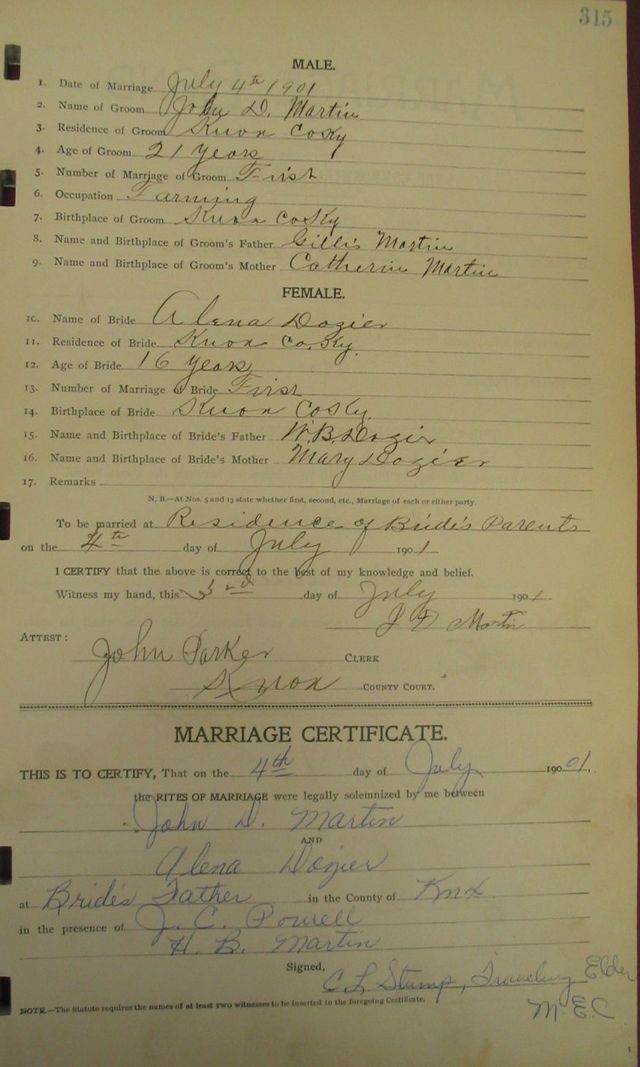 315
MALE.
1. Date of Marriage July 4th 1901
2. Name of Groom John D. Martin
3. Residence of Groom Knox Co Ky
4. Age of Groom 21 years
5. Number of Marriage of Groom First
6. Occupation Farming
7. Birthplace of Groom Knox Co Ky
8. Name and Birthplace of Groom's Father Gillis Martin
9. Name and Birthplace of Groom's Mother Catherin Martin
FEMALE.
10. Name of Bride Alena Dozier
11. Residence of Bride Knox Co. Ky.
12. Age of Bride 16 years
13. Number of Marriage of Bride First
14. Birthplace of Bride Knox Co Ky.
15. Name and Birthplace of Bride's Father W.B. Dozier
16. Name and Birthplace of Bride's Mother Mary Dozier
17. Remarks
N. B.—At Nos. 5 and 13 state whether first, second, etc., Marriage of each or either party.
To be married at Residence of Bride's Parents
on the 4th day of July 1901
I CERTIFY that the above is correct to the best of my knowledge and belief.
Witness my hand, this 3rd day of July 1901
J D Martin
ATTEST:
John Parker CLERK
Knox COUNTY COURT.
MARRIAGE CERTIFICATE.
THIS IS TO CERTIFY, That on the 4th day of July 1901.
the RITES OF MARRIAGE were legally solemnized by me between
John D. Martin
AND
Alena Dozier
at Bride's Father in the County of Knx
in the presence of J. C. Powell
H. B. Martin
Signed,
C L Stump, Traveling Elder
M.E.C
NOTE.—The Statute requires the names of at least two witnesses to be inserted in the foregoing Certificate.